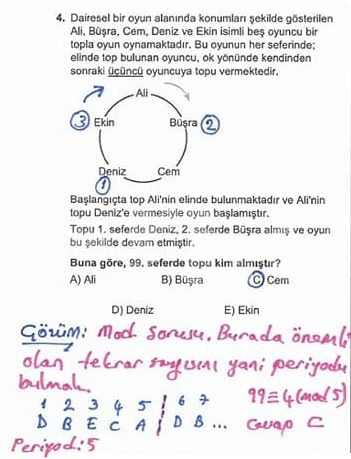 4. Dairesel bir oyun alanında konumları şekilde gösterilen
Ali, Büşra, Cem, Deniz ve Ekin isimli beş oyuncu bir
topla oyun oynamaktadır. Bu oyunun her seferinde;
elinde top bulunan oyuncu, ok yönünde kendinden
sonraki üçüncü oyuncuya topu vermektedir.
Ali
3 Ekin
Büşra 2
Deniz
Cem
1
Başlangıçta top Ali'nin elinde bulunmaktadır ve Ali'nin
topu Deniz'e vermesiyle oyun başlamıştır.
Topu 1. seferde Deniz, 2. seferde Büşra almış ve oyun
bu şekilde devam etmiştir.
Buna göre, 99. seferde topu kim almıştır?
A) Ali B) Büşra C) Cem
D) Deniz E) Ekin
Çözüm: Mod sorusu. Burada önemli
olan tekrar sayısını yani periyodu
bulmak.
1 2 3 4 5 | 6 7 99≡4 (mod 5)
D B E C A | D B ... Cevap C
Periyod: 5